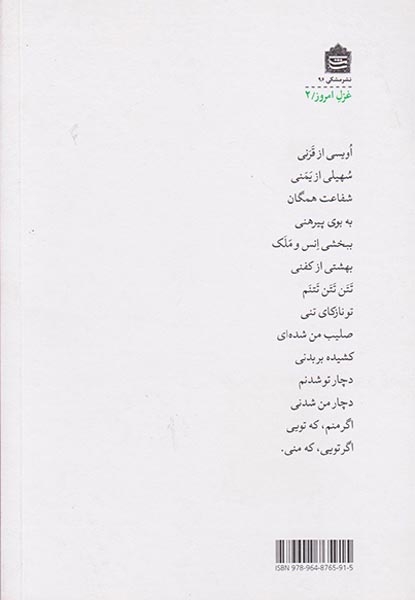 نشر مشکی ۹۶
غزل امروز/۲
اُویسی از قَرَنی
سُهیلی از یَمَنی
شفاعت همگان
به بوی پیرهنی
ببخشی اِنس و مَلَک
بهشتی از کفنی
تَتَن تَتَن تَتنَم
تو نازکای تنی
صلیب من شده‌ای
کشیده بر بدنی
دچار تو شدنم
دچار من شدنی
اگر منم، که تویی
اگر تویی، که منی.
ISBN 978-964-8765-91-5